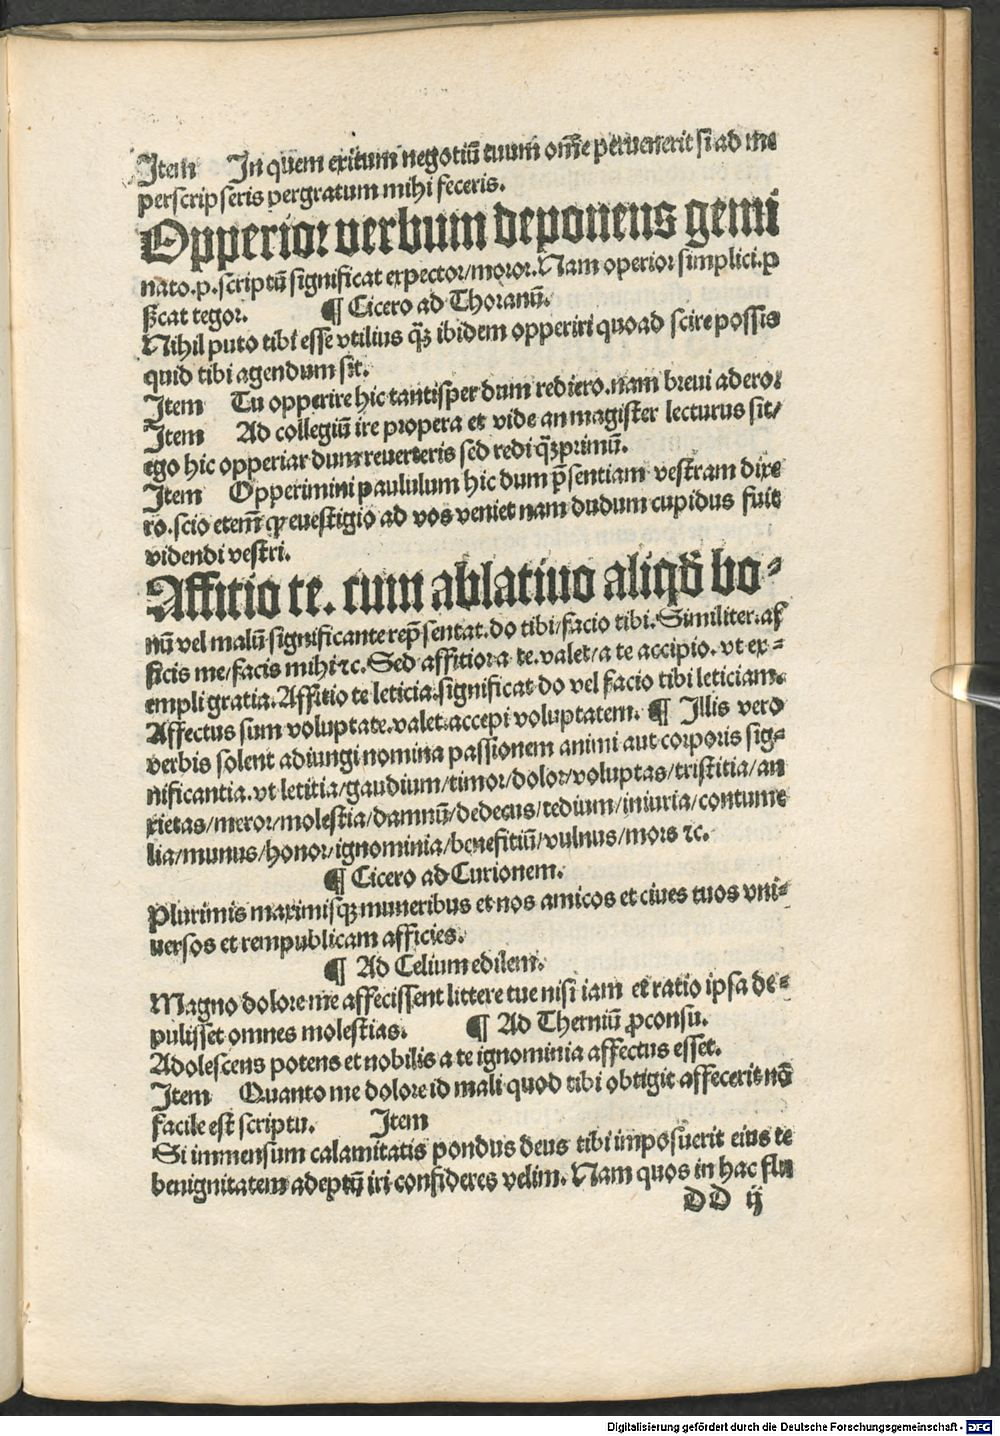 Item In quem exitum negotiũ tuum om̃e peruenerit si ad me
perscripseris pergratum mihi feceris.
Opperior verbum deponens gemi
nato.p.scriptũ significat expector/moror. Nam operior simplici.p
ſcat tegor. ¶ Cicero ad Thoranũ.
Nihil puto tibi esse vtilius q̃ꝫ ibidem opperiri quoad scire possis
quid tibi agendum sit.
Item Tu opperire hic tantisper dum rediero. nam breui adero:
Item Ad collegiũ ire propera et vide an magister lecturus sit/
ego hic opperiar dum reuerteris sed redi q̃ꝫprimũ.
Item Opperimini paululum hic dum p̃sentiam vestram dixe
ro. scio etem̃ ꝙ euestigio ad vos veniet nam dudum cupidus fuit
videndi vestri.
Affitio te. cum ablatiuo aliqd̃ bo-
nũ vel malũ significante rep̃sentat. do tibi/facio tibi. Similiter. af
ficis me/facis mihi ⁊c. Sed affitior a te. valet/a te accipio. vt ex-
empli gratia. Affitio te leticia. significat do vel facio tibi leticiam.
Affectus sum voluptate. valet. accepi voluptatem. ¶ Illis vero
verbis solent adiungi nomina passionem animi aut corporis sig-
nificantia. vt letitia/gaudium/timor/dolor/voluptas/tristitia/an
xietas/meror/molestia/damnũ/dedecus/tedium/iniuria/contume
lia/munus/honor/ignominia/benefitiũ/vulnus/mors ⁊c.
¶ Cicero ad Curionem.
Plurimis maximisqꝫ muneribus et nos amicos et ciues tuos vni-
uersos et rempublicam afficies.
¶ Ad Celium edilem.
Magno dolore me affecissent littere tue nisi iam et ratio ipsa de-
pulisset omnes molestias. ¶ Ad Therniũ ꝓconsu.
Adolescens potens et nobilis a te ignominia affectus esset.
Item Quanto me dolore id mali quod tibi obtigit affecerit nõ
facile est scriptu. Item
Si immensum calamitatis pondus deus tibi imposuerit eius te
benignitatem adeptũ iri confideres velim. Nam quos in hac flu
DD ij
Digitalisierung gefördert durch die Deutsche Forschungsgemeinschaft - DFG